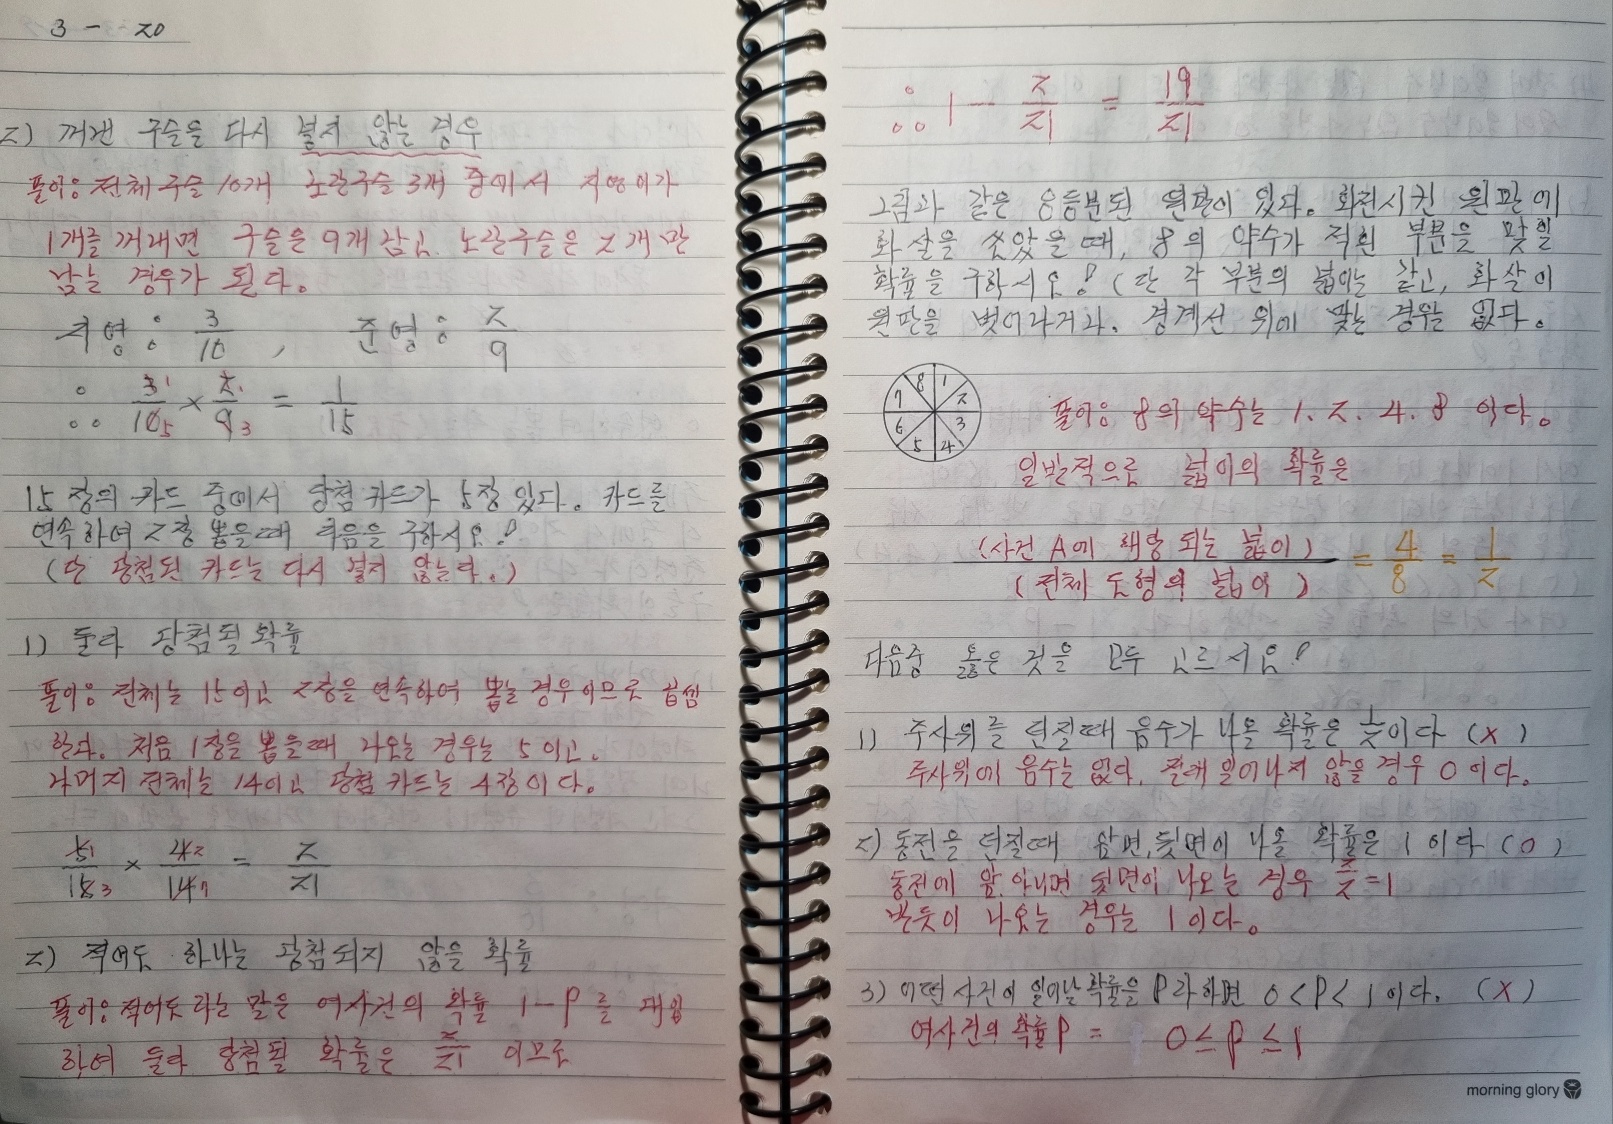 3 - 20
2) 꺼낸 구슬을 다시 넣지 않는 경우
풀이: 전체 구슬 10개 노란구슬 3개 중에서 지영이가
1개를 꺼내면 구슬은 9개 남고. 노란구슬은 2개만
남는 경우가 된다.
지영: 3/10 , 준영: 2/9
∴ 3/10 × 2/9 = 1/15
15장의 카드 중에서 당첨카드가 5장 있다. 카드를
연속하여 2장 뽑을때 다음을 구하시오!
(단 당첨된 카드는 다시 넣지 않는다.)
1) 둘다 당첨될 확률
풀이: 전체는 15이고 2장을 연속하여 뽑는 경우이므로 곱셈
한다. 처음 1장을 뽑을때 나오는 경우는 5이고.
나머지 전체는 14이고 당첨 카드는 4장이다.
5/15 × 4/14 = 2/21
2) 적어도 하나는 당첨되지 않을 확률
풀이: 적어도 라는 말은 여사건의 확률 1-P를 대입
하여 둘다 당첨될 확률은 2/21 이므로
∴ 1 - 2/21 = 19/21
그림과 같은 8등분된 원판이 있다. 회전시킨 원판에
화살을 쏘았을때, 8의 약수가 적힌 부분을 맞힐
확률을 구하시오! (단 각 부분의 넓이는 같고, 화살이
원판을 벗어나거나. 경계선 위에 맞는 경우는 없다.
8 1
7 2
6 3
5 4
풀이: 8의 약수는 1. 2. 4. 8 이다.
일반적으로 넓이의 확률은
(사건 A에 해당 되는 넓이) / (전체 도형의 넓이) = 4/8 = 1/2
다음중 옳은 것을 모두 고르세요!
1) 주사위를 던질때 음수가 나올 확률은 이다 (X)
주사위에 음수는 없다. 절대 일어나지 않을 경우 0이다.
2) 동전을 던질때 앞면, 뒷면이 나올 확률은 1이다 (O)
동전에 앞 아니면 뒷면이 나오는 경우 2/2=1
반듯이 나오는 경우는 1이다.
3) 어떤 사건이 일어날 확률을 P라하면 0<P<1이다. (X)
여사건의 확률 P = 0≤P≤1
morning glory